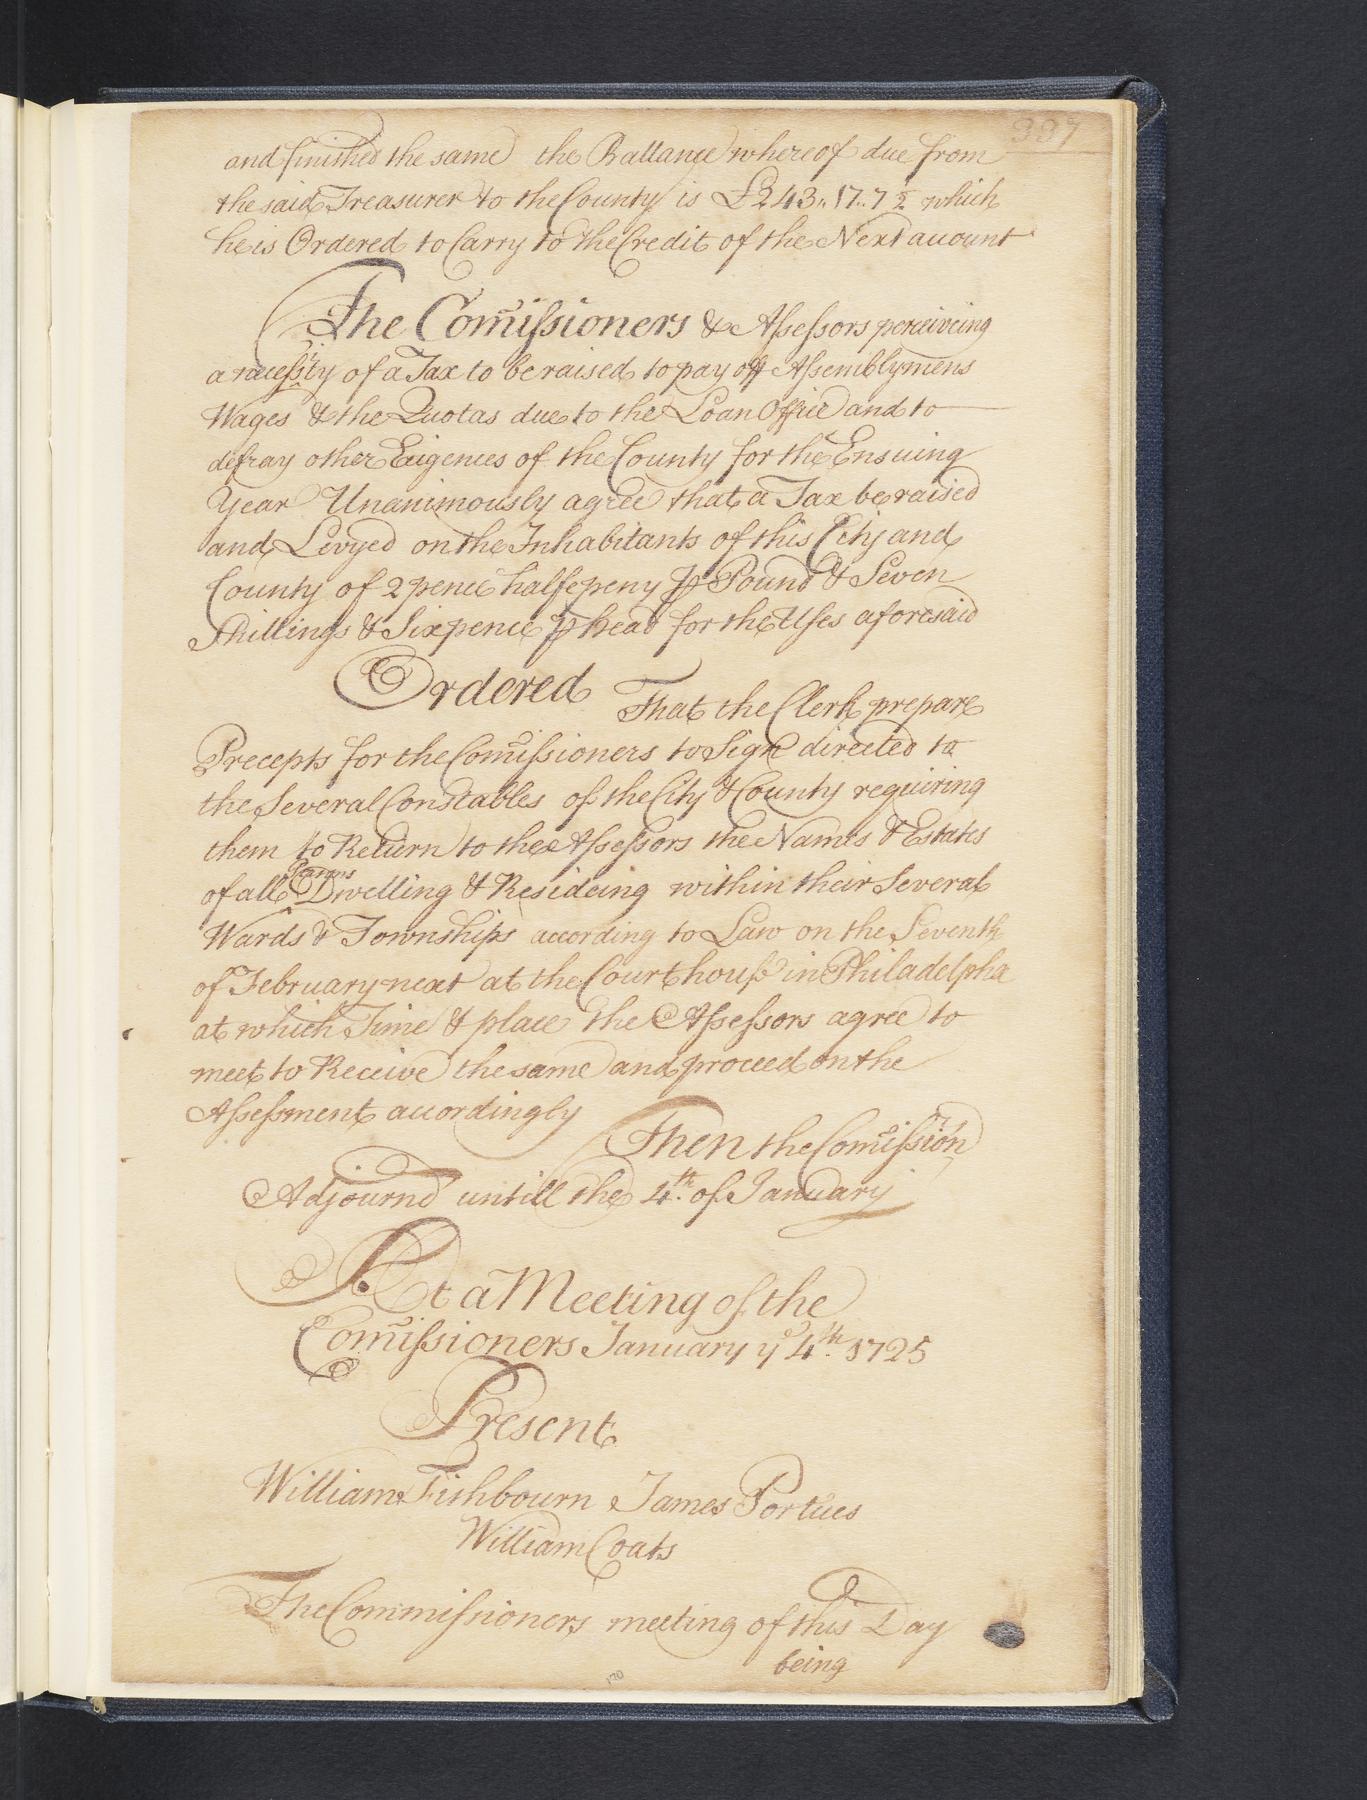 337
and finished the same the Ballance whereof due from
the said Treasurer to the County is £243..17..7½ which
he is Ordered to Carry to the Credit of the Next account
The Comissioners & Assessors perceiveing
a necessity of a Tax to be raised to pay off Assemblymens
Wages & the Quotas due to the Loan Office and to
defray other Exigences of the County for the Ensuing
Year Unanimously agree that a Tax be raised
and Levyed on the Inhabitants of this City and
County of 2 pence halfepeny ⅌ Pound & Seven
Shillings & Sixpence ⅌ head for the Uses aforesaid
Ordered That the Clerk prepare
Precepts for the Comissioners to Sign directed to
the Several Constables of the City & County requiring
them to Return to the Assessors the Names & Estates
of all Persons Dwelling & Resideing within their Several
Wards & Townships according to Law on the Seventh
of February next at the Court house in Philadelphia
at which Time & place the Assessors agree to
meet to Receive the same and proceed on the
Assessment accordingly
Then the Comission
Adjournd untill the 4th. of January
At a Meeting of the
Comissioners January ye 4th. 1725
Present
William Fishbourn James Portues
William Coats
The Commissioners meeting of this Day
being
170